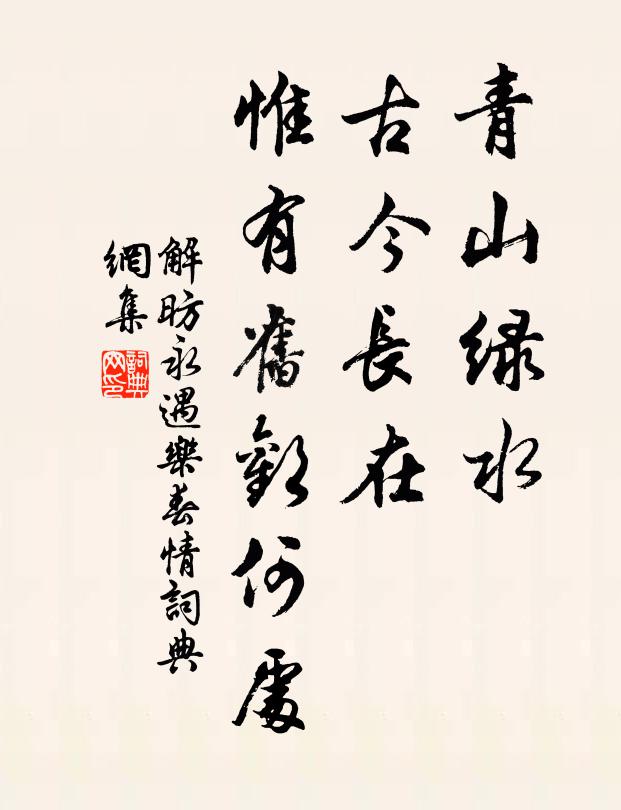 青山綠水
古今長在
惟有舊歡何處
解昉永遇樂春情詞典
網集
詞典
网印